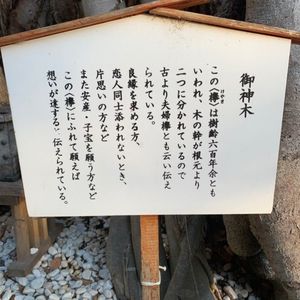 御神木
この〈欅〉は樹齢六百年余とも
いわれ、木の幹が根元より
二つに分かれているので
古より夫婦欅とも云い伝え
られている。
良縁を求める方、
恋人同士添われないとき、
片思いの方など
また安産・子宝を願う方など
この〈欅〉にふれて願えば
想いが達すると伝えられている。